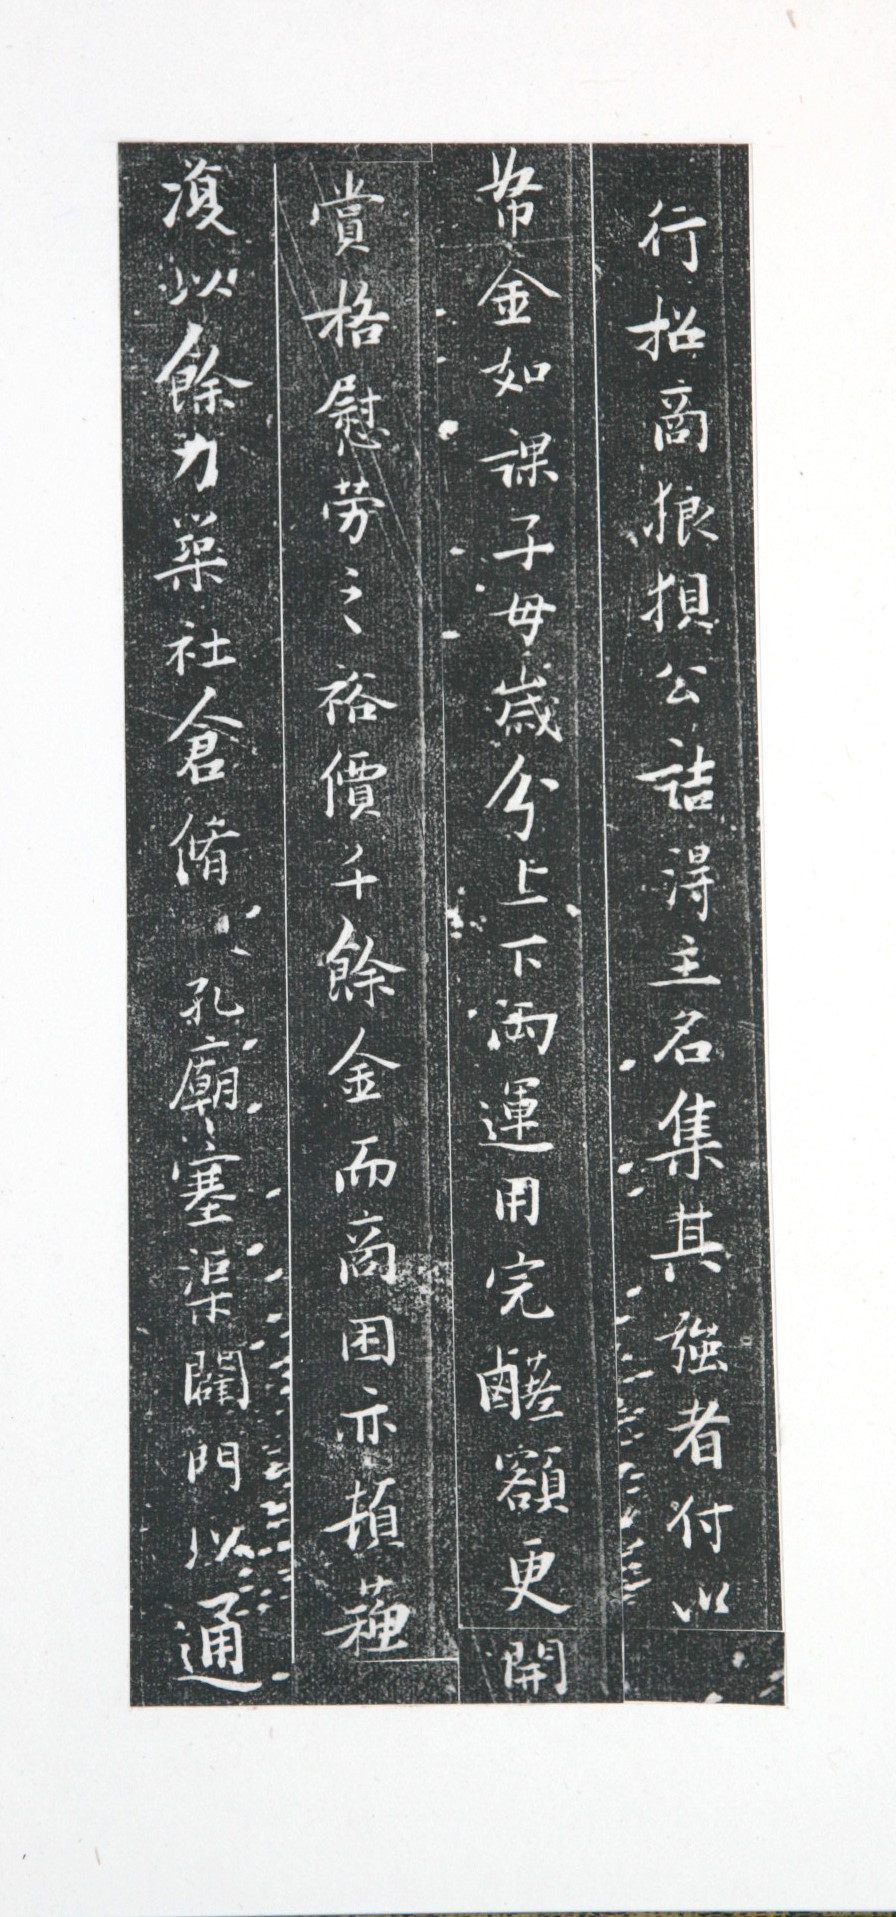 行招商狼狽公詰得主名集其強者付以
帑金如課子母歲分上下兩運用完鹺額更開
賞格慰勞之裕價千餘金而商困亦頓蘇
復以餘力築社倉脩孔廟塞渠闢門以通